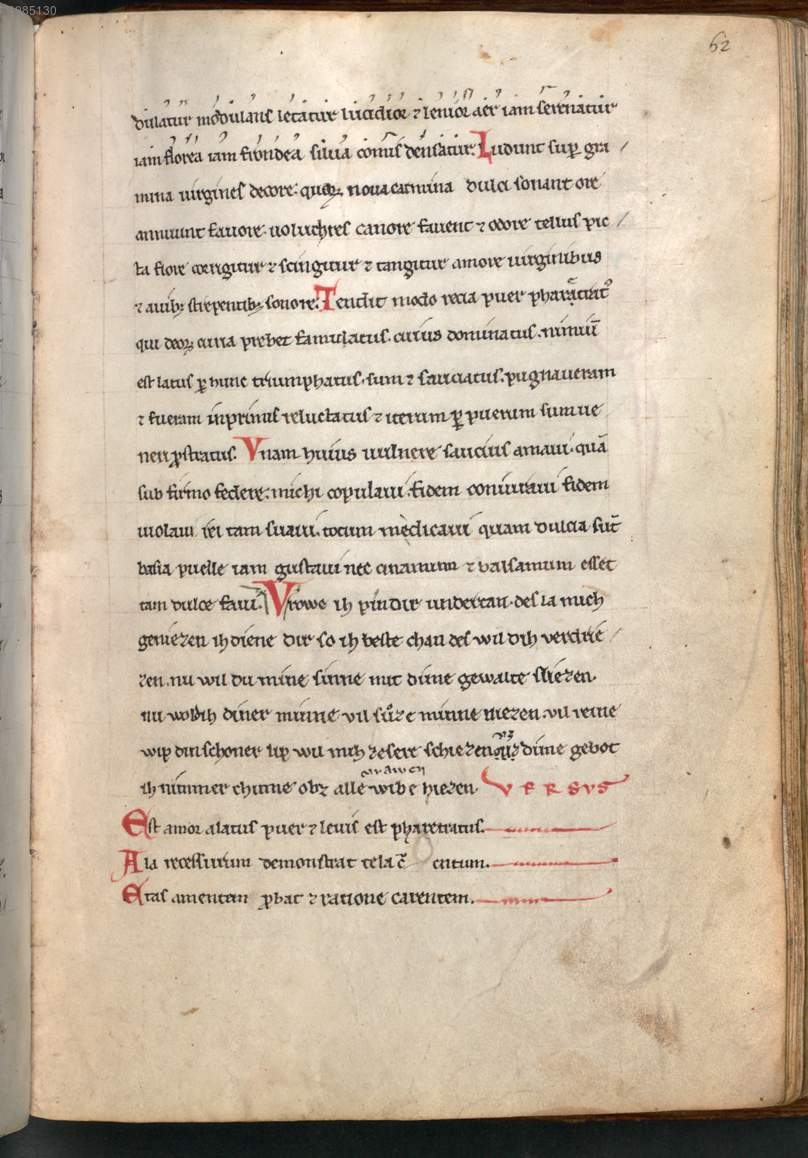 62
dulatur modulans letatur lucidior ⁊ lenior aer iam serenatur
iam florea iam frondea silua comis densatur. Ludunt sup gra
mina uirgines decore. quaꝝ noua carmina dulci sonant ore
annuunt fauore. uolucres canore fauent ⁊ odore tellus pic
ta flore corrigitur ⁊ scingitur ⁊ tangitur amore uirginibus
⁊ auibꝫ strepentibꝫ sonore. Tendit modo recia puer pharatratꝰ
qui deoꝝ curia prebet famulatus. cuius dominatus. nimiū
est latus ꝑ hunc triumphatus. sum ⁊ sauciatus. pugnaueram
⁊ fueram inprimis reluctatus ⁊ iterum ꝑ puerum sum ue
neri ꝓstratus. Vnam huius uulnere saucius amaui. quā
sub firmo federe. michi copulaui. fidem coniuraui fidem
uiolaui rei tam suaui. totum medicaui quam dulcia sūt
basia puelle iam gustaui nec cinamum ⁊ balsamum esset
tam dulce faui. Vrowe ih pin dir undertan. des la mich
geniezen ih diene dir so ih beste chan des wil dih verdrie
zen. nu wil du mine sinne mit dime gewalte sliezen.
nu woldih diner minne vil suͦze minne niezen. vil reine
wip din schoner lip wil mih ze sere schiezen uz dime gebot
vrawen
ih nimmer chume obz alle wibe hiezen. VERSVS
Est amor alatus puer ⁊ leuis est pharetratus.
Ala recessurum demonstrat tela cruentum.
Etas amentem ꝓbat ⁊ ratione carentem.